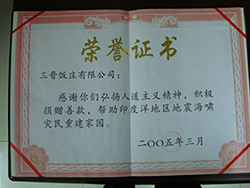 荣誉证书
三晋饭庄有限公司：
感谢你们弘扬人道主义精神，积极
捐赠善款，帮助印度洋地区地震海啸
灾民重建家园。
二〇〇五年三月